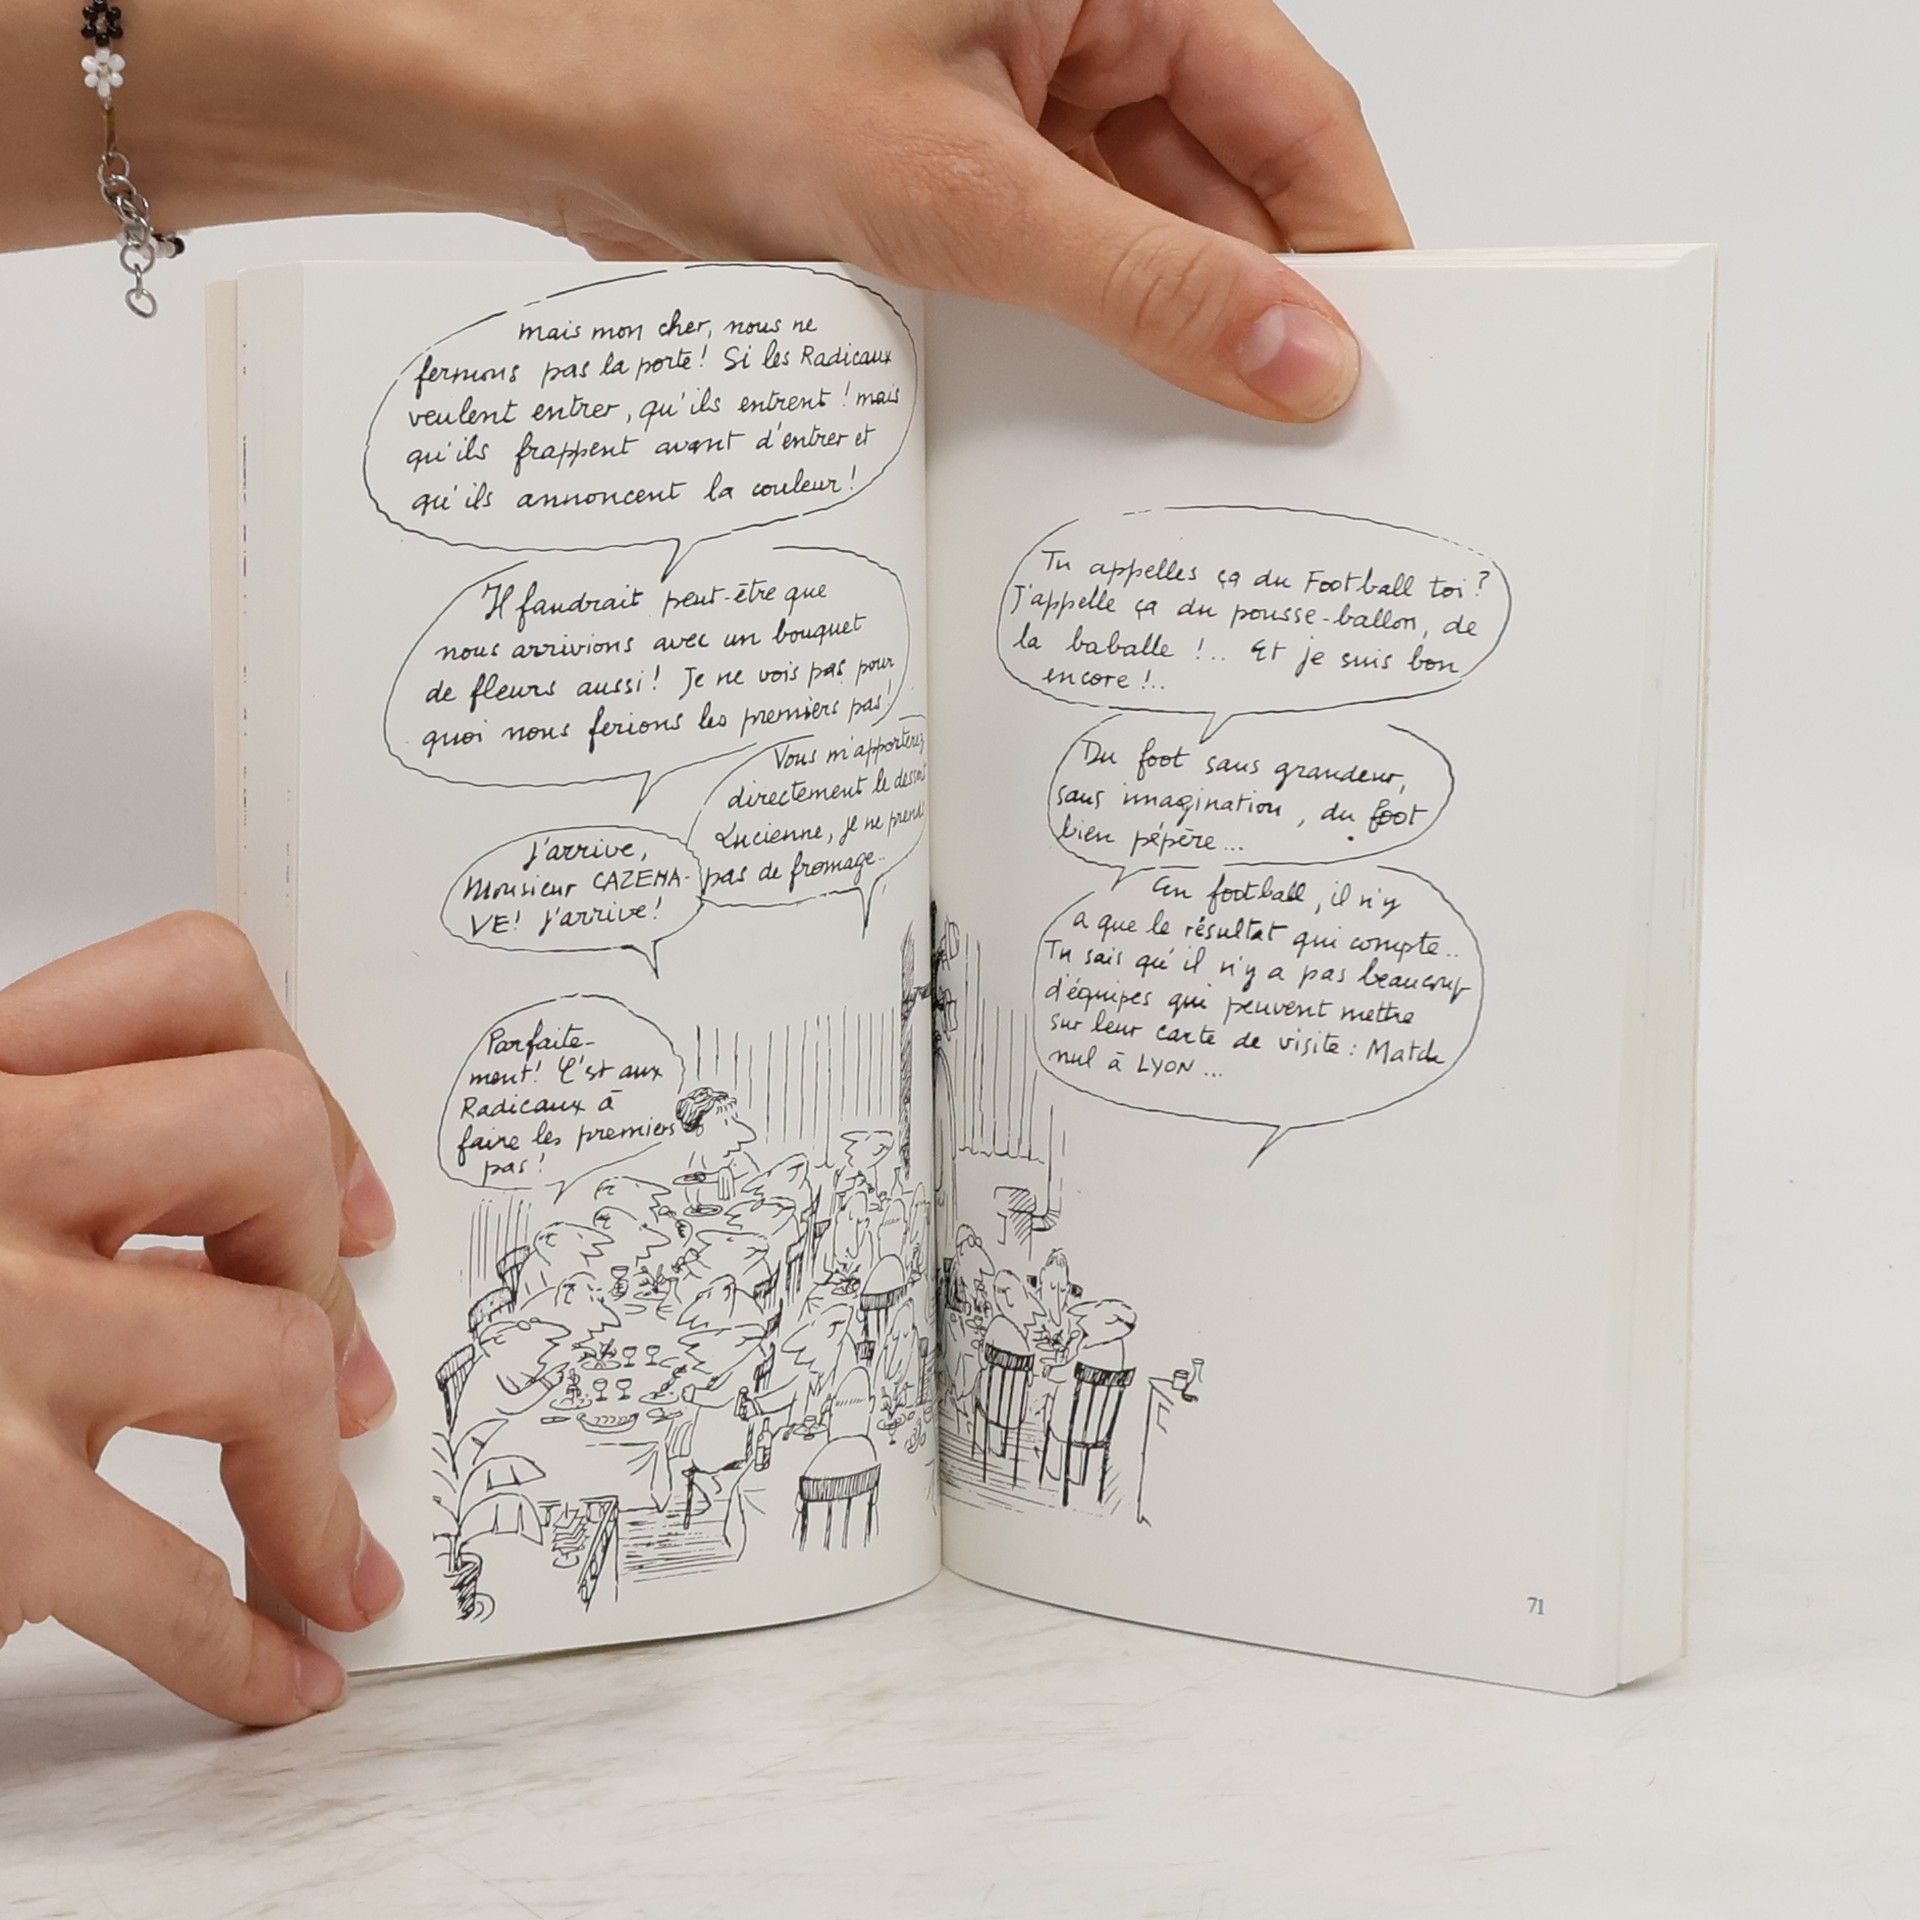 mais mon cher, nous ne
fermons pas la porte! Si les Radicaux
veulent entrer, qu'ils entrent! mais
qu'ils frappent avant d'entrer et
qu'ils annoncent la couleur!
Il faudrait peut-être que
nous arrivions avec un bouquet
de fleurs aussi! Je ne vois pas pour
quoi nous ferions les premiers pas!
Vous m'apporterez
directement le dessert
Lucienne, je ne prends
pas de fromage..
J'arrive,
Monsieur CAZENA-
VE! J'arrive!
Parfaite-
ment! C'est aux
Radicaux à
faire les premiers
pas!
Tu appelles ça du Football toi?
J'appelle ça du pousse-ballon, de
la baballe!.. Et je suis bon
encore!..
Du foot sans grandeur,
sans imagination, du foot
bien pépère...
En football, il n'y
a que le résultat qui compte..
Tu sais qu'il n'y a pas beaucoup
d'équipes qui peuvent mettre
sur leur carte de visite: Match
nul à LYON...
71